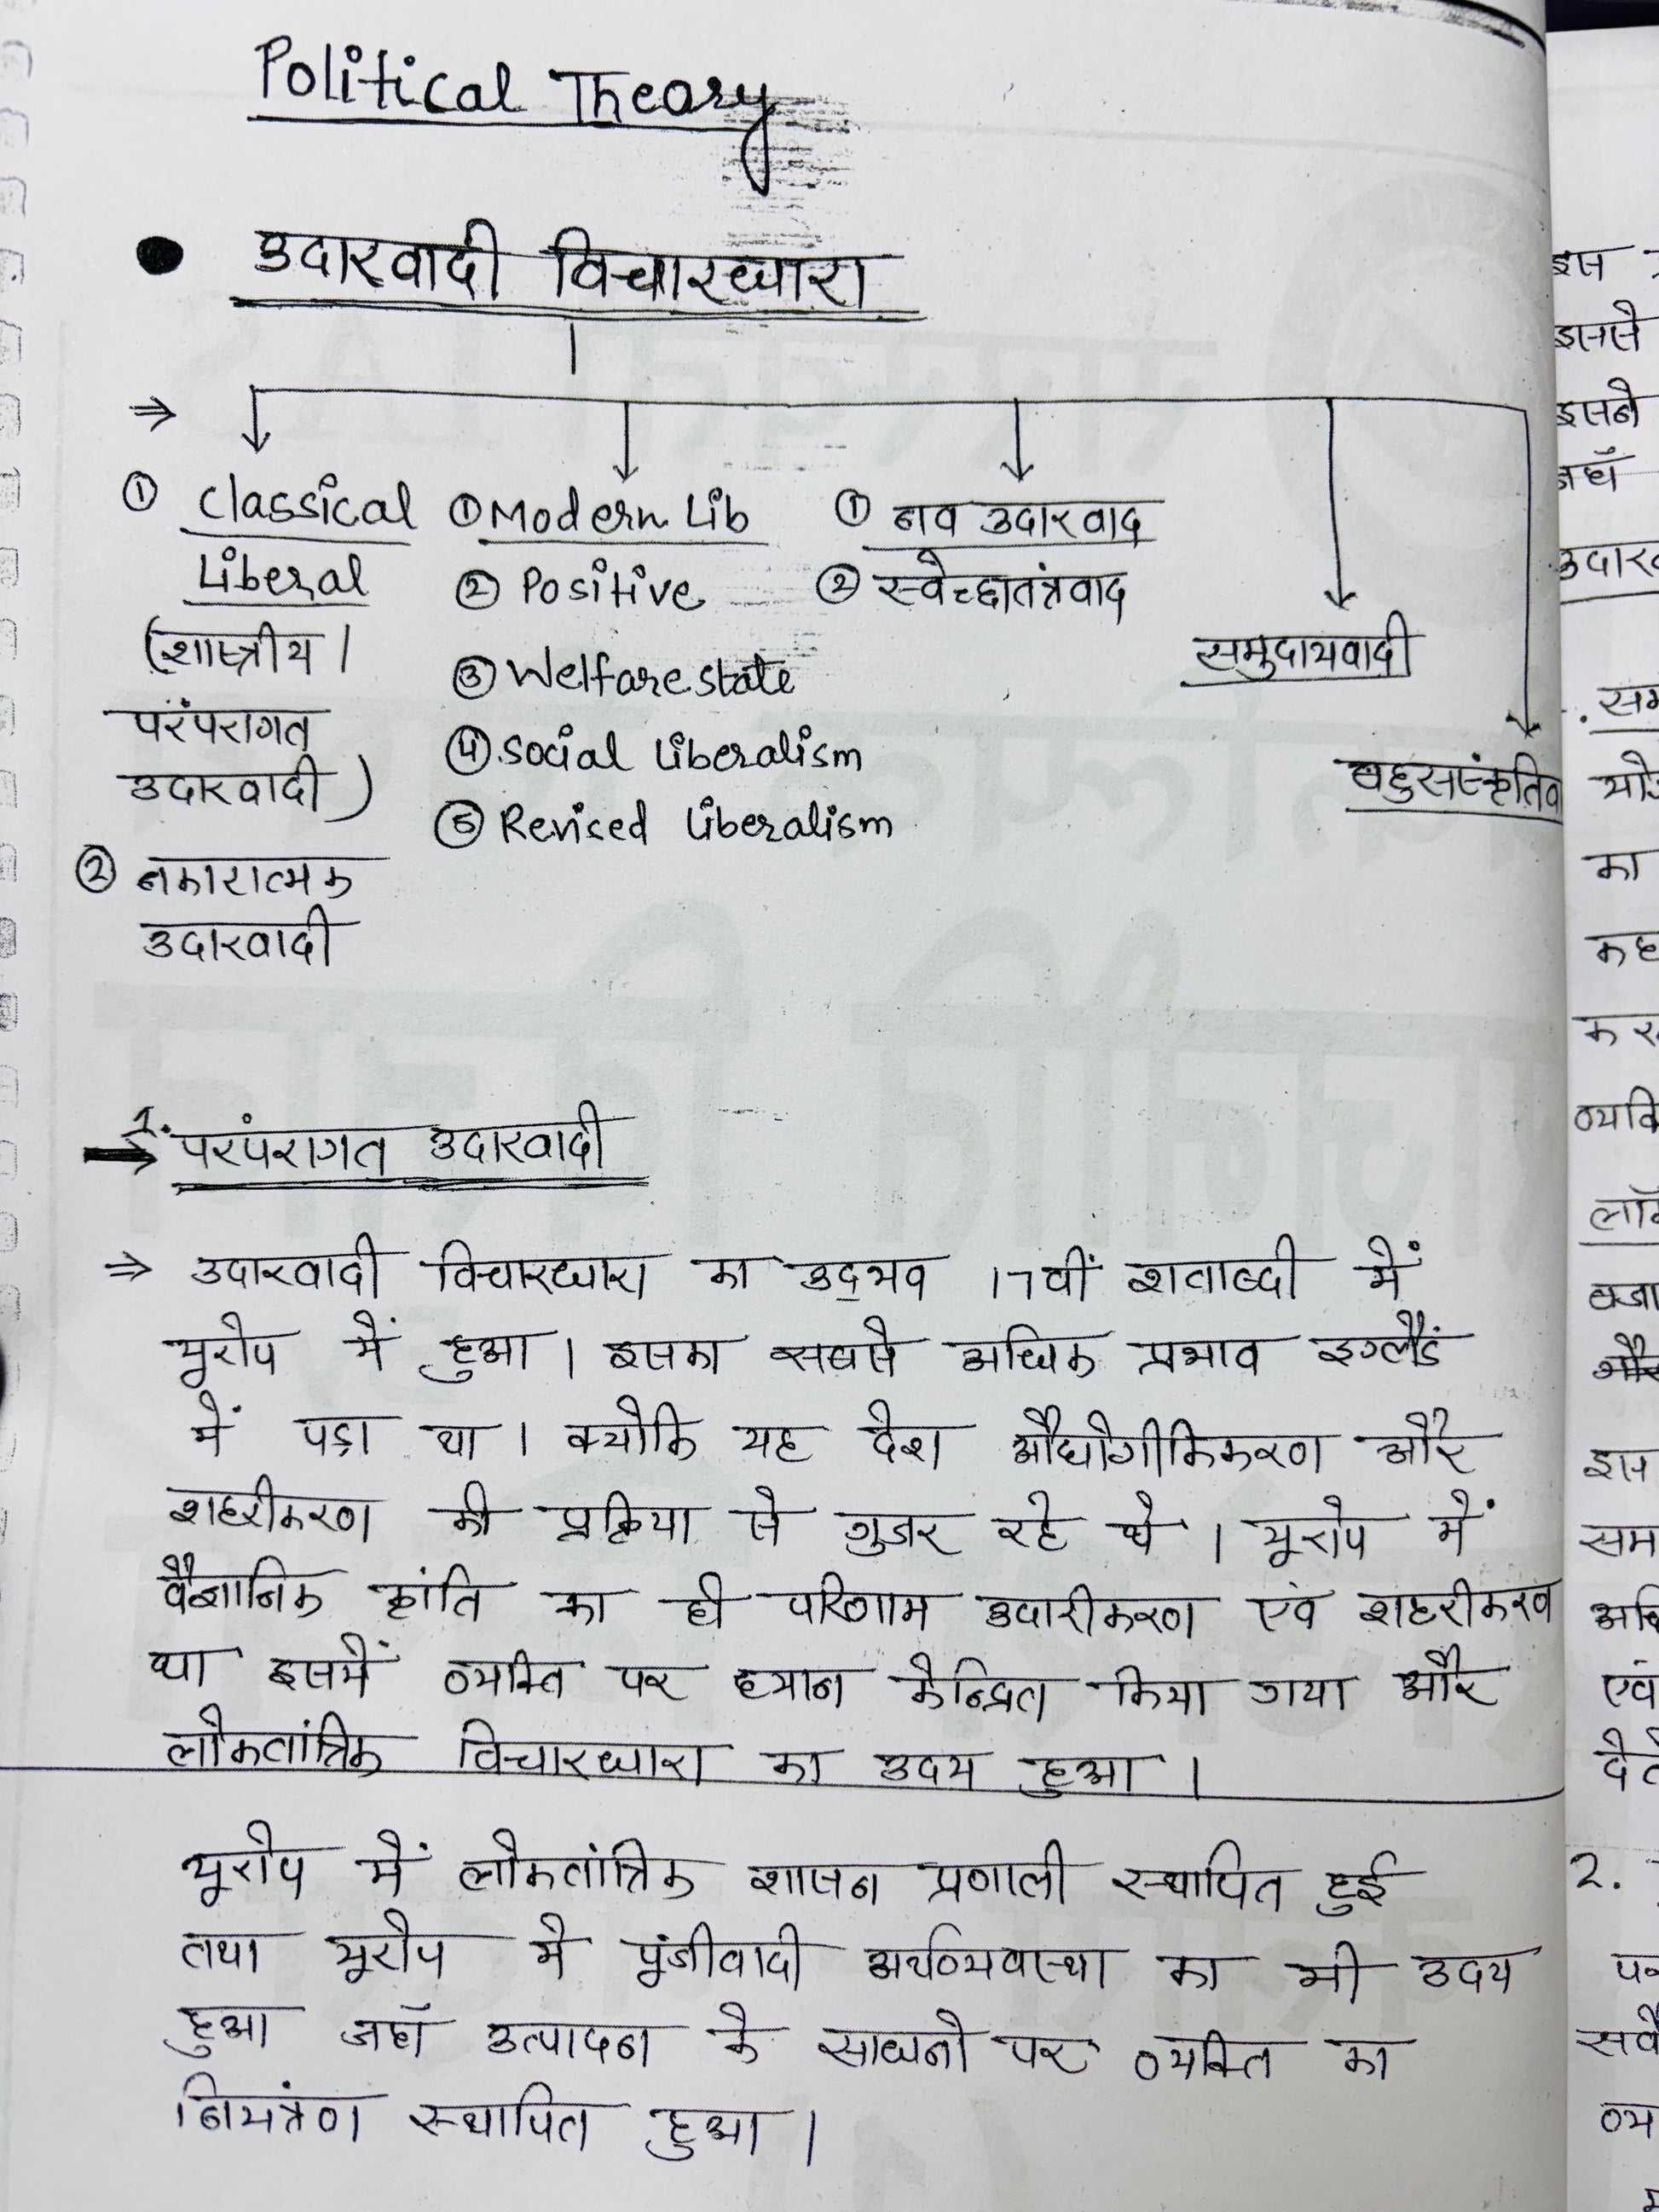 Political Theory
● उदारवादी विचारधारा
⇒
① Classical
Liberal
(शास्त्रीय ।
परंपरागत
उदारवादी)
② नकारात्मक
उदारवादी
① Modern Lib
② Positive
③ Welfare state
④ Social Liberalism
⑤ Revised Liberalism
① नव उदारवाद
② स्वेच्छातंत्रवाद
समुदायवादी
बहुसांस्कृतिव
1. परंपरागत उदारवादी
⇒ उदारवादी विचारधारा का उद्भव 17वीं शताब्दी में
यूरोप में हुआ । इसका सबसे अधिक प्रभाव इग्लैंड
में पड़ा था । क्योकि यह देश औद्योगीकिकरण और
शहरीकरण की प्रक्रिया से गुजर रहे थे । यूरोप में
वैज्ञानिक क्रांति का ही परिणाम उदारीकरण एवं शहरीकरण
था इसमें व्यक्ति पर ध्यान केन्द्रित किया गया और
लोकतांत्रिक विचारधारा का उदय हुआ ।
यूरोप में लोकतांत्रिक शासन प्रणाली स्थापित हुई
तथा यूरोप मे पूंजीवादी अर्थव्यवस्था का भी उदय
हुआ जहाँ उत्पादन के साधनो पर व्यक्ति का
नियंत्रण स्थापित हुआ ।
इस
इससे
इसने
जहाँ
का
इस
एवं
2.